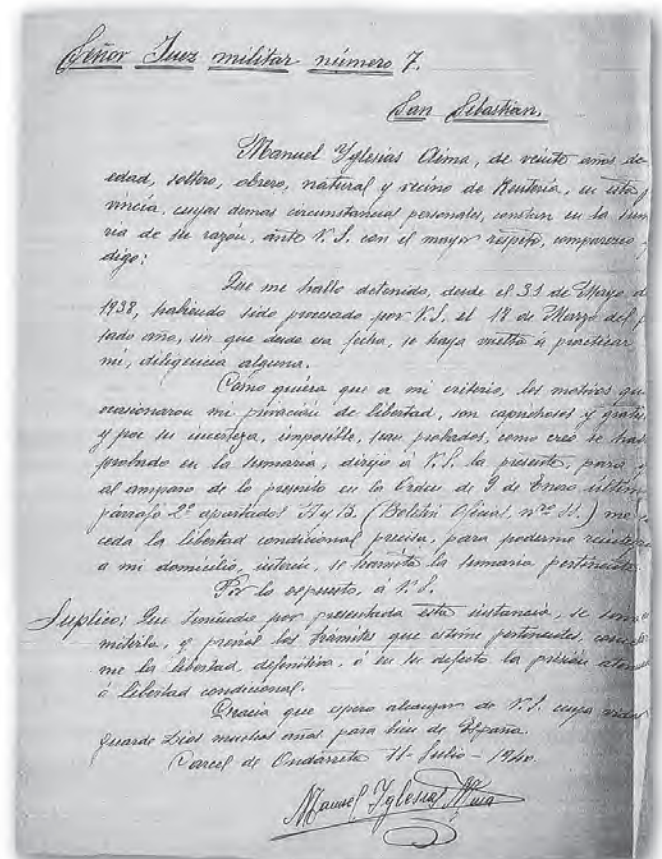 Señor Juez militar número 7.
San Sebastian.
Manuel Yglesias Aima, de veinte años de
edad, soltero, obrero, natural y vecino de Rentería, en esta
vincia, cuyas demas circunstancias personales, constan en la suma
ria de su razón, ante V.S. con el mayor respeto, comparezco y
digo:
Que me hallo detenido, desde el 31 de Mayo de
1938, habiendo sido procesado por V.S. el 18 de Marzo del
sado año, sin que desde esa fecha, se haya vuelto á practicar
mi, diligencia alguna.
Como quiera que a mi criterio, los motivos que
ocasionaron mi privación de libertad, son caprichosos y
y por su incerteza, imposible, sean probados, como creo se
probado en la sumaria, dirijo á V.S. la presente, para
al amparo de lo prescrito en la Orden de 9 de Enero último
párrafo 2º apartados A y B. (Boletín Oficial, nº 11.) me
ceda la libertad condicional precisa, para poderme
a mi domicilio, interin, se tramita la sumaria pertinente.
Por lo expuesto, á V.S.
Suplico: Que teniendo por presentada esta instancia, se
mitirla, y previos los trámites que estime pertinentes,
me la libertad, definitiva, ó en su defecto la prisión
ó libertad condicional.
Gracia que espero alcanzar de V.S. cuya vida
guarde Dios muchos años para bien de España.
Carcel de Ondarreta 11-Julio-1940.
Manuel Yglesias